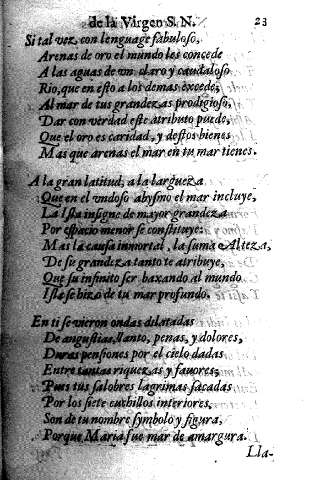 de la Virgen S. N. 23
Si tal vez con lenguage fabuloso,
Arenas de oro el mundo les concede
A las aguas de vn claro y caudaloso
Rio, que en esto a los demas excede;
Al mar de tus grandezas prodigioso,
Dar con verdad este atributo puede,
Que el oro es caridad, y destos bienes
Mas que arenas el mar en tu mar tienes.
A la gran latitud, a la largueza
Que en el vndoso abysmo el mar incluye,
La Isla insigne de mayor grandeza
Por espacio menor se constituye:
Mas la causa inmortal, la suma Alteza,
De su grandeza tanto te atribuye,
Que su infinito ser baxando al mundo
Isla se hizo de tu mar profundo.
En ti se vieron ondas dilatadas
De angustias, llanto, penas, y dolores,
Duras pensiones por el cielo dadas
Entre tantas riquezas y fauores;
Pues tus salobres lagrimas sacadas
Por los siete cuchillos interiores,
Son de tu nombre symbolo y figura,
Porque Maria fue mar de amargura.
Lla-